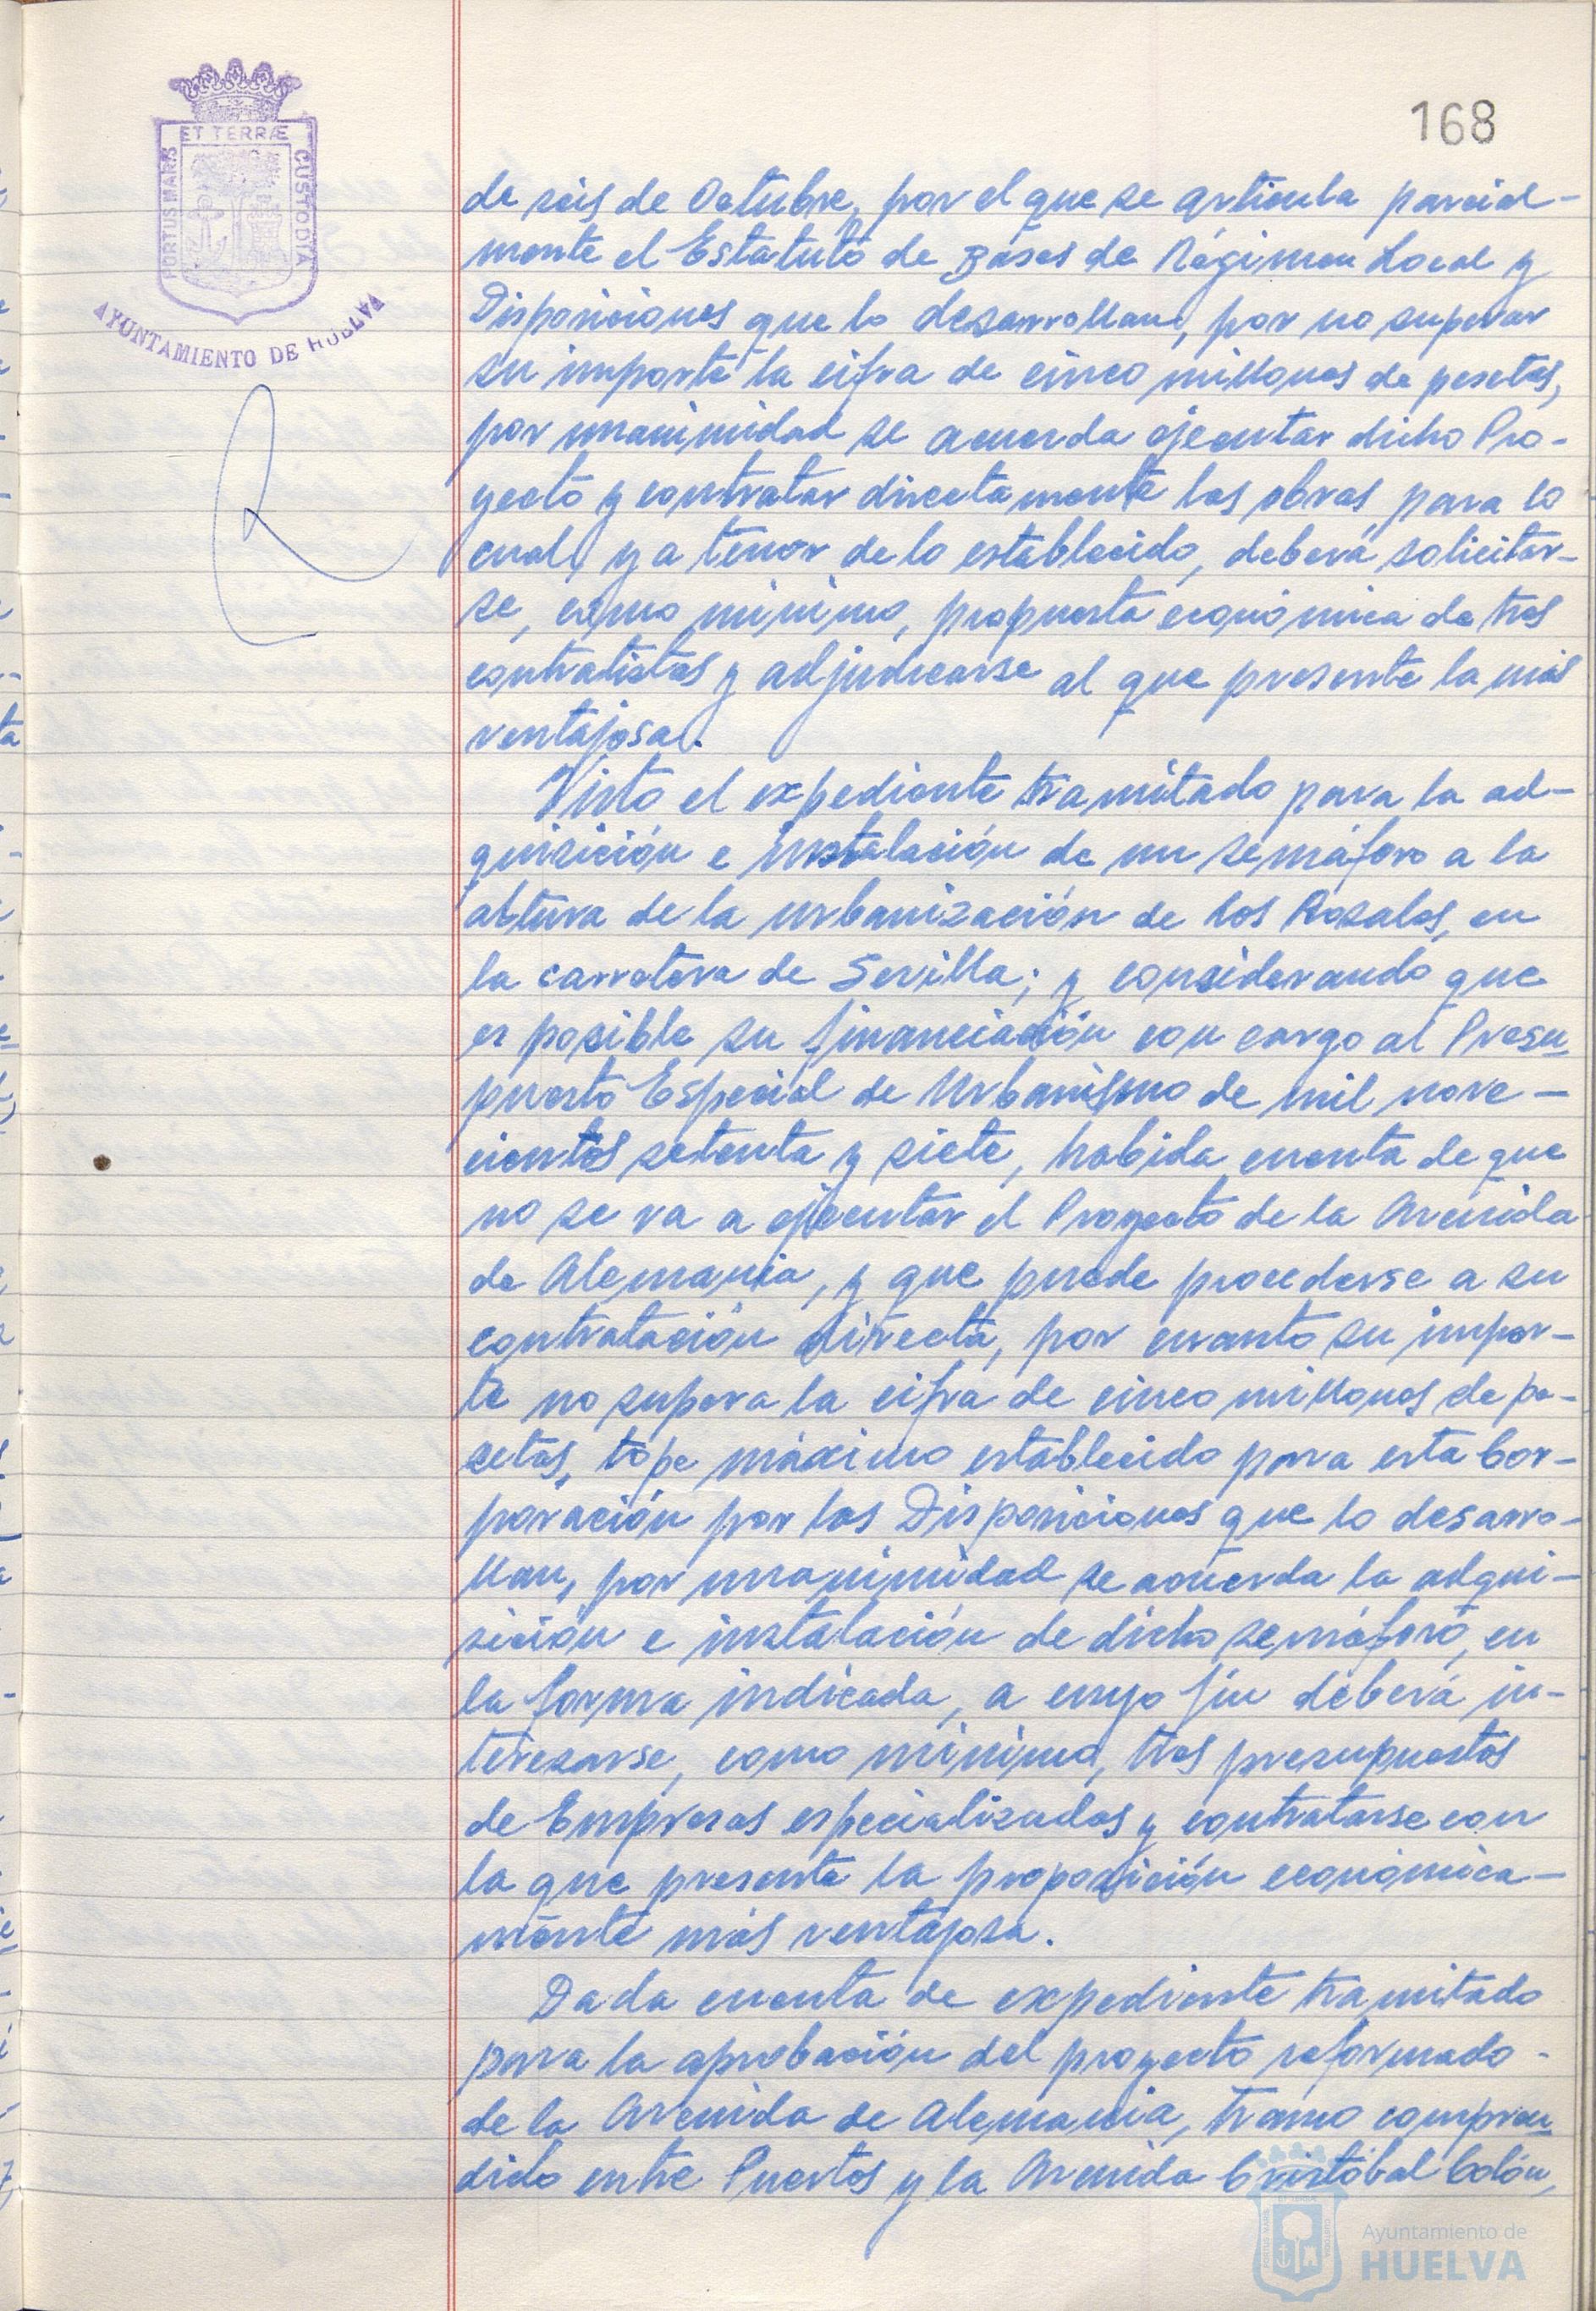 168
ET TERRÆ
PORTUS MARIS
CUSTODIA
AYUNTAMIENTO DE HUELVA
de seis de Octubre, por el que se articula parcial-
mente el Estatuto de Bases de Régimen Local y
Disposiciones que lo desarrollan, por no superar
su importe la cifra de cinco millones de pesetas,
por unanimidad se acuerda ejecutar dicho Pro-
yecto y contratar directamente las obras, para lo
cual, y a tenor de lo establecido, deberá solicitar-
se, como mínimo, propuesta económica de tres
contratistas y adjudicarse al que presente la más
ventajosa.
Visto el expediente tramitado para la ad-
quisición e instalación de un semáforo a la
altura de la urbanización de los Rosales, en
la carretera de Sevilla; y considerando que
es posible su financiación con cargo al Presu-
puesto Especial de Urbanismo de mil nove-
cientos setenta y siete, habida cuenta de que
no se va a ejecutar el Proyecto de la Avenida
de Alemania, y que puede procederse a su
contratación directa, por cuanto su impor-
te no supera la cifra de cinco millones de pe-
setas, tope máximo establecido para esta Cor-
poración por las Disposiciones que lo desarro-
llan, por unanimidad se acuerda la adqui-
sición e instalación de dicho semáforo, en
la forma indicada, a cuyo fin deberá in-
teresarse, como mínimo, tres presupuestos
de Empresas especializadas y contratarse con
la que presente la proposición económica-
mente más ventajosa.
Dada cuenta de expediente tramitado
para la aprobación del proyecto reformado-
de la Avenida de Alemania, tramo compren-
dido entre Puertos y la Avenida Cristóbal Colón,
Ayuntamiento de
HUELVA